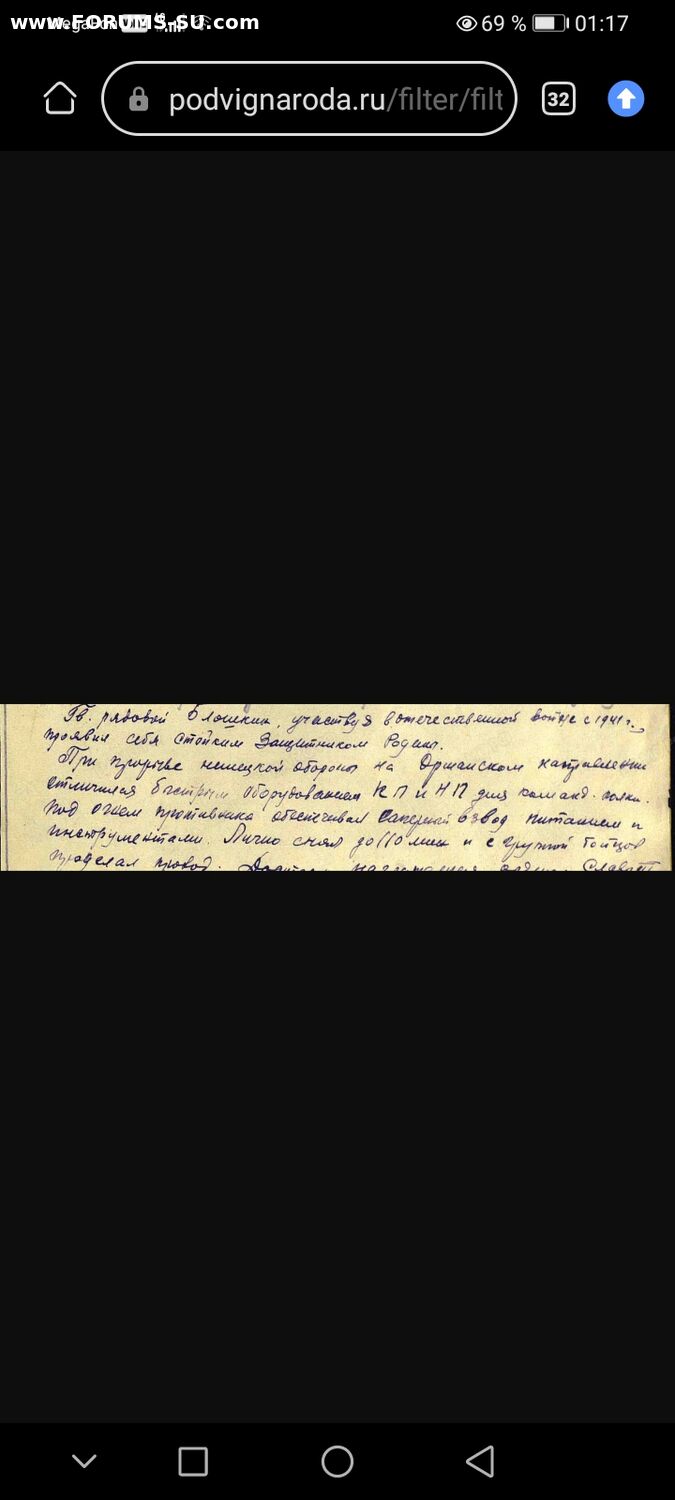 www.FORUMS-SU.com
69 % 01:17
podvignaroda.ru/filter/filt
32
Гв. рядовой Блошкин, участвуя в отечественной войне с 1941 г.
проявил себя стойким Защитником Родины.
При прорыве немецкой обороны на Оршанском направлении
отличился быстрым оборудованием КП и НП для команд. полка.
Под огнем противника обеспечивал саперный взвод питанием и
инструментами. Лично снял до 110 мин и с группой бойцов
проделал проход. Достоин награждения орден. Слава III